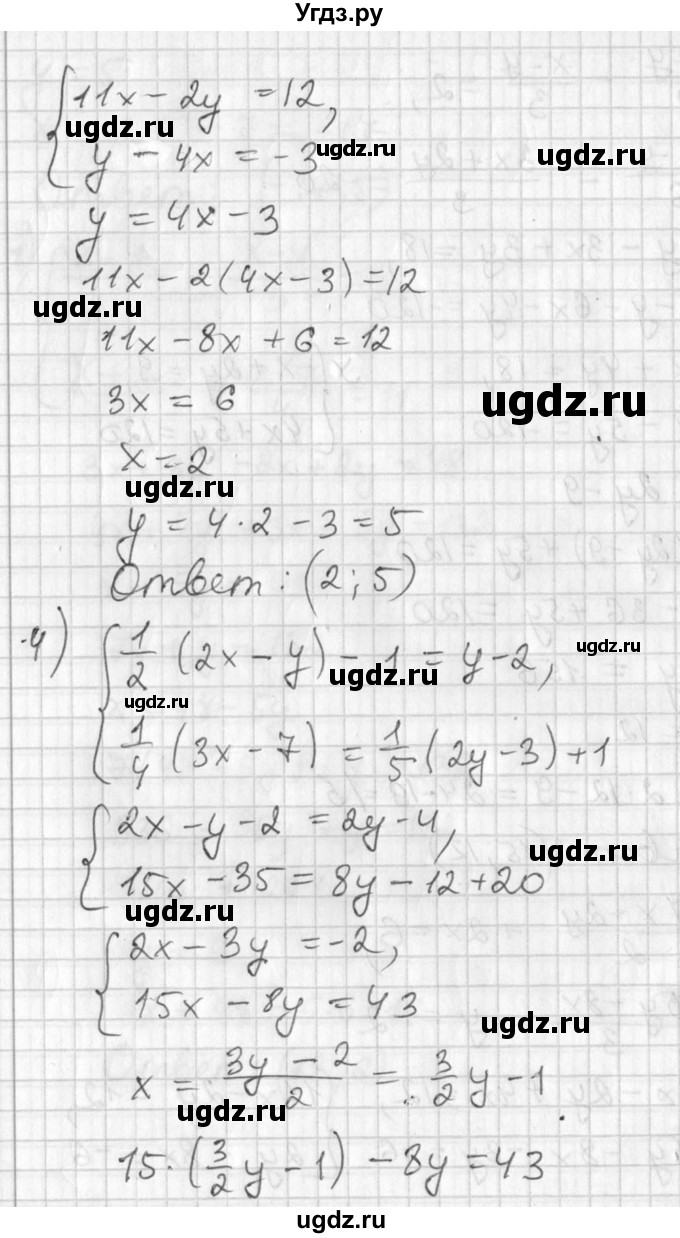 Угдз.ру
{ 11x - 2y = 12,
ugdz.ru ugdz.ru ugdz.ru
y - 4x = -3
y = 4x - 3
11x - 2(4x - 3) = 12
ugdz.ru
11x - 8x + 6 = 12
3x = 6
ugdz.ru
x = 2
ugdz.ru
y = 4 · 2 - 3 = 5
Ответ: (2; 5)
4) { 1/2 (2x - y) - 1 = y - 2,
ugdz.ru ugdz.ru
ugdz.ru
1/4 (3x - 7) = 1/5 (2y - 3) + 1
{ 2x - y - 2 = 2y - 4,
ugdz.ru
15x - 35 = 8y - 12 + 20
ugdz.ru
{ 2x - 3y = -2,
15x - 8y = 43
ugdz.ru
x = (3y - 2)/2 = 3/2 y - 1
ugdz.ru
15 · (3/2 y - 1) - 8y = 43
ugdz.ru